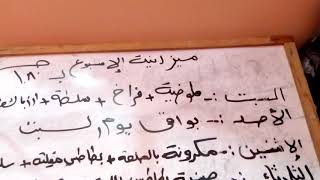 ميزانية الإسبوع بـ ١٨٠ جـ
السبت :- ملوخية + فراخ + سلطة +
الأحد :- بواقى يوم السبت
الإثنين :- مكرونة بالصلصة + بطاطس مقلية +
الثلاثاء :-